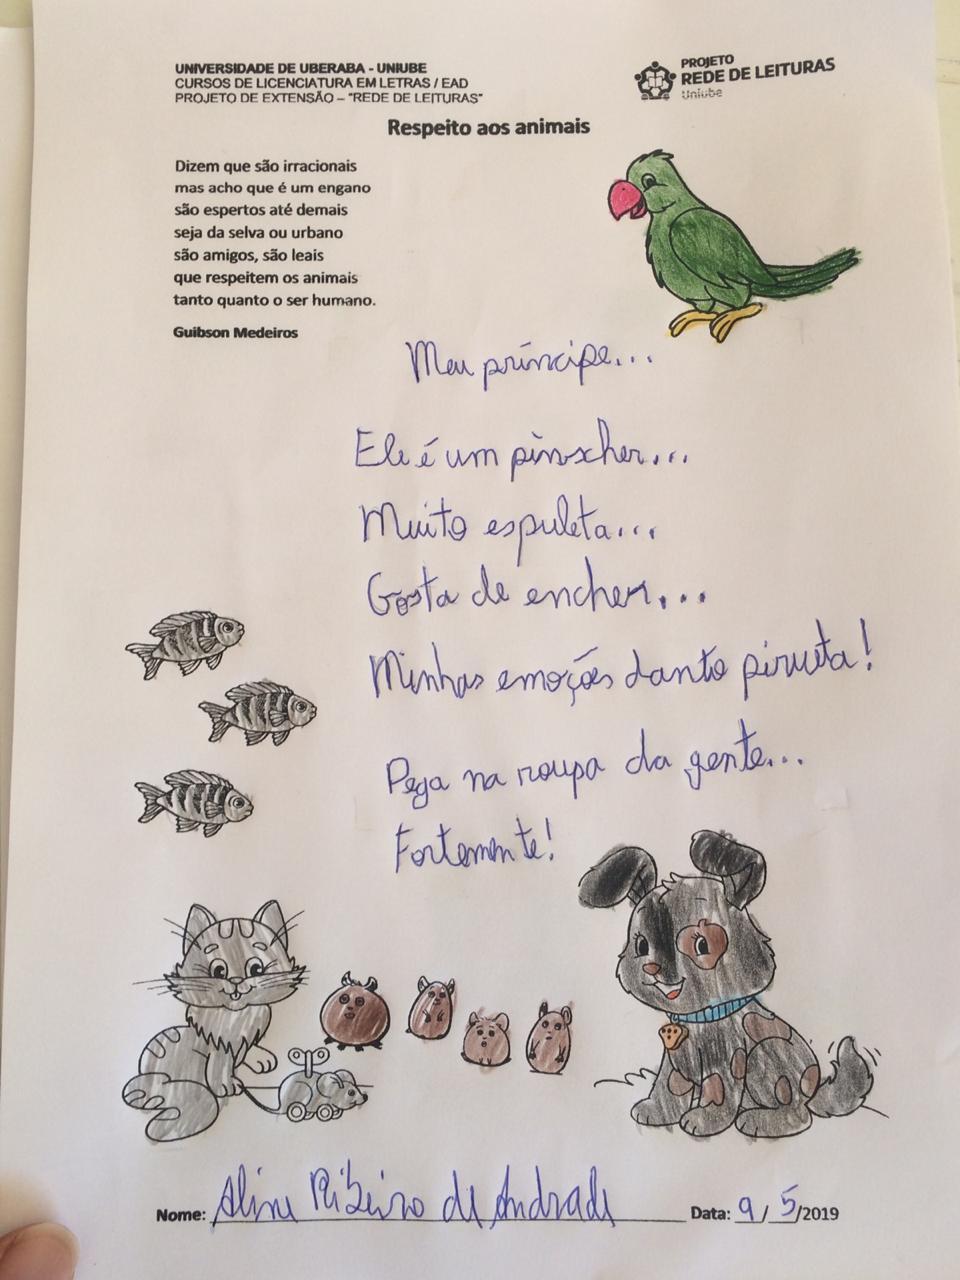 UNIVERSIDADE DE UBERABA - UNIUBE
CURSOS DE LICENCIATURA EM LETRAS / EAD
PROJETO DE EXTENSÃO – "REDE DE LEITURAS"
PROJETO
REDE DE LEITURAS
Uniube
Respeito aos animais
Dizem que são irracionais
mas acho que é um engano
são espertos até demais
seja da selva ou urbano
são amigos, são leais
que respeitem os animais
tanto quanto o ser humano.
Guibson Medeiros
Meu príncipe...
Ele é um pinscher...
Muito espuleta...
Gosta de encher...
Minhas emoções danto pirueta!
Pega na roupa da gente...
Fortemente!
Nome: Aline Ribeiro de Andrade Data: 9/5/2019